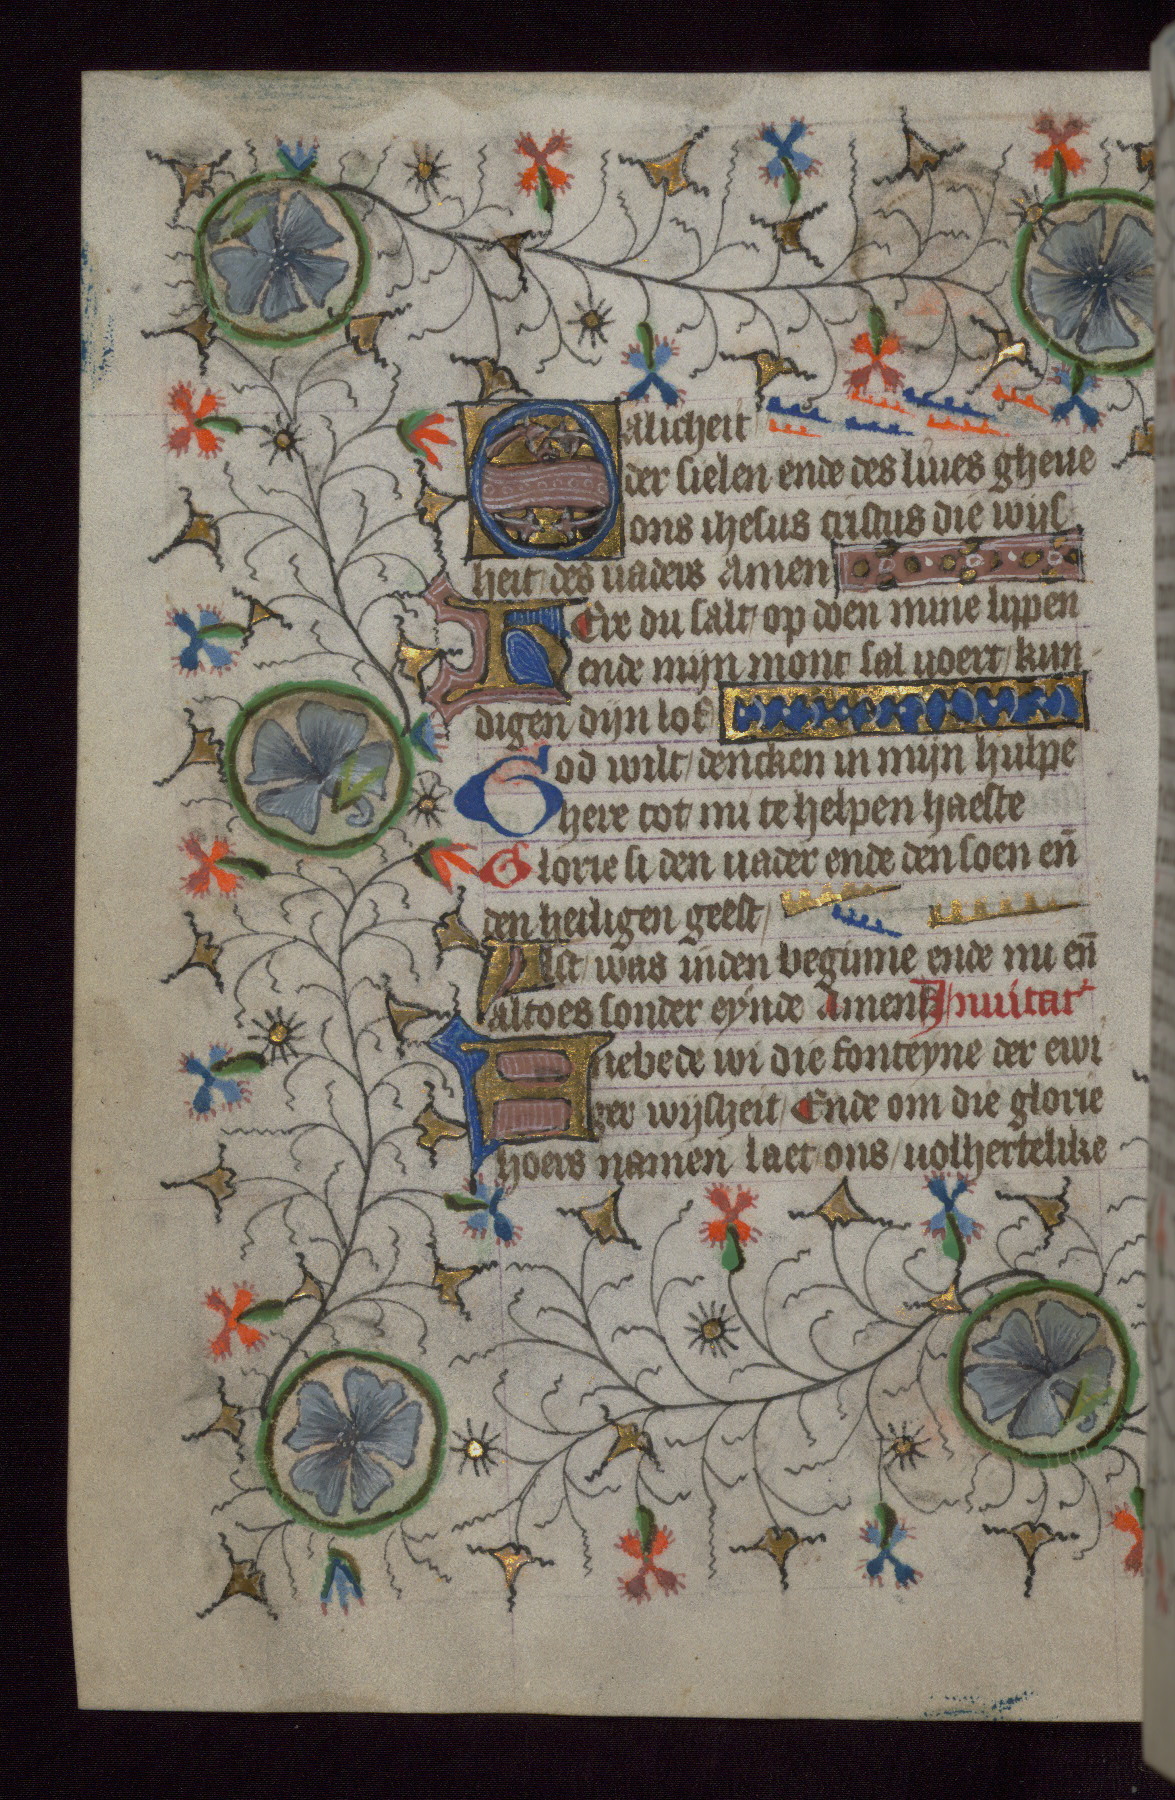 Salicheit
der sielen ende des liues gheue
ons ihesus cristus die wijs
heit des uaders Amen
HEre du salt op doen mine lippen
ende mijn mont sal uoert kun
digen dijn lof
God wilt dencken in mijn hulpe
here tot mi te helpen haeste
Glorie si den uader ende den soen eñ
den heiligen geest
Alst was inden beginne ende nu eñ
altoes sonder eynde Amen Inuitat
Anebede wi die fonteyne der ewi
ger wijsheit Ende om die glorie
hoers namen laet ons uolhertelike